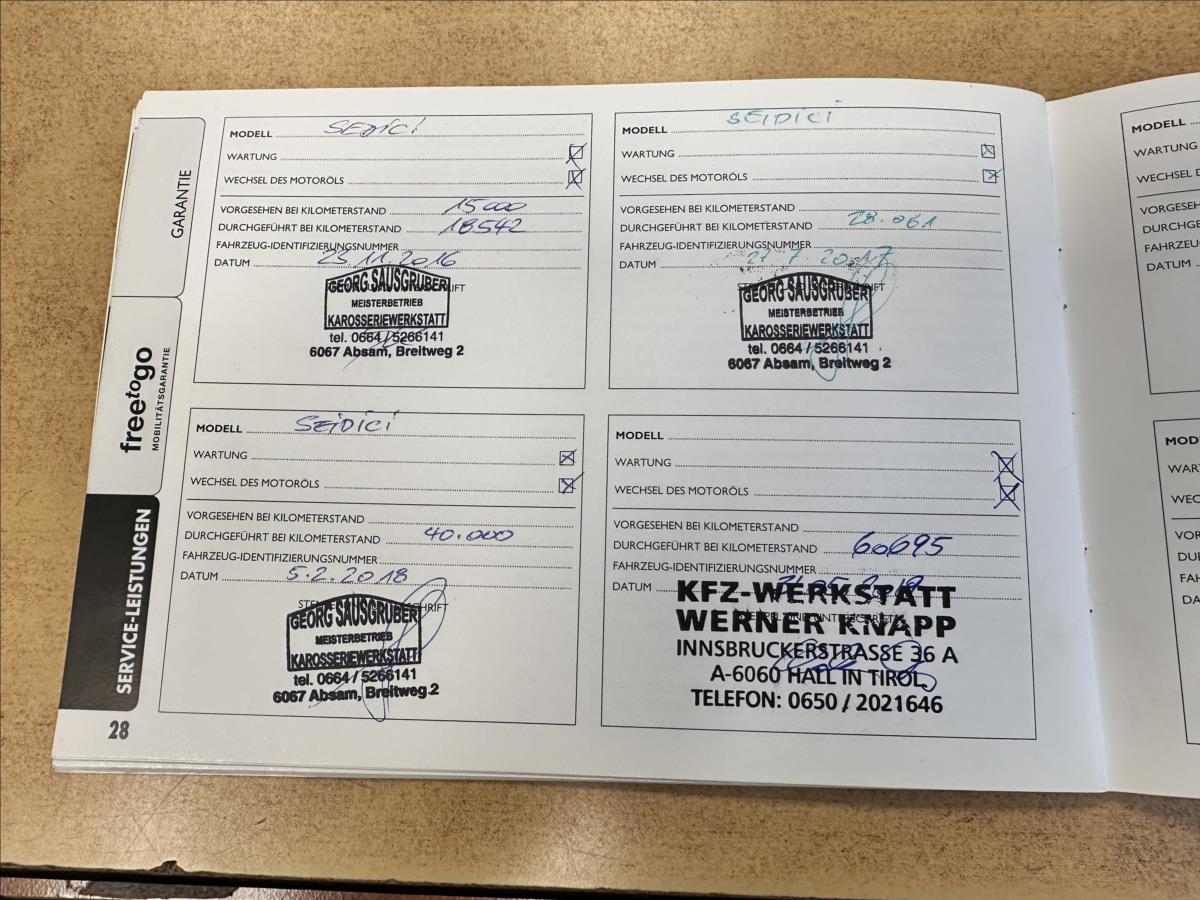 GARANTIE
freetogo
MOBILITÄTSGARANTIE
SERVICE-LEISTUNGEN
28
MODELL SEDICI
WARTUNG
WECHSEL DES MOTORÖLS
VORGESEHEN BEI KILOMETERSTAND 15000
DURCHGEFÜHRT BEI KILOMETERSTAND 18542
FAHRZEUG-IDENTIFIZIERUNGSNUMMER
DATUM 23.11.2016
GEORG SAUSGRUBER
MEISTERBETRIEB
KAROSSERIEWERKSTATT
tel. 0664 / 5266141
6067 Absam, Breitweg 2
MODELL SEIDICI
WARTUNG
WECHSEL DES MOTORÖLS
VORGESEHEN BEI KILOMETERSTAND
DURCHGEFÜHRT BEI KILOMETERSTAND 28.061
FAHRZEUG-IDENTIFIZIERUNGSNUMMER
DATUM 27.7.2017
GEORG SAUSGRUBER
MEISTERBETRIEB
KAROSSERIEWERKSTATT
tel. 0664 / 5266141
6067 Absam, Breitweg 2
MODELL SEIDICI
WARTUNG
WECHSEL DES MOTORÖLS
VORGESEHEN BEI KILOMETERSTAND
DURCHGEFÜHRT BEI KILOMETERSTAND 40.000
FAHRZEUG-IDENTIFIZIERUNGSNUMMER
DATUM 5.2.2018
GEORG SAUSGRUBER
MEISTERBETRIEB
KAROSSERIEWERKSTATT
tel. 0664 / 5266141
6067 Absam, Breitweg.2
MODELL
WARTUNG
WECHSEL DES MOTORÖLS
VORGESEHEN BEI KILOMETERSTAND
DURCHGEFÜHRT BEI KILOMETERSTAND 60695
FAHRZEUG-IDENTIFIZIERUNGSNUMMER
DATUM
KFZ-WERKSTATT
WERNER KNAPP
INNSBRUCKERSTRASSE 36 A
A-6060 HALL IN TIROL
TELEFON: 0650 / 2021646
MODELL
WARTUNG
DATUM